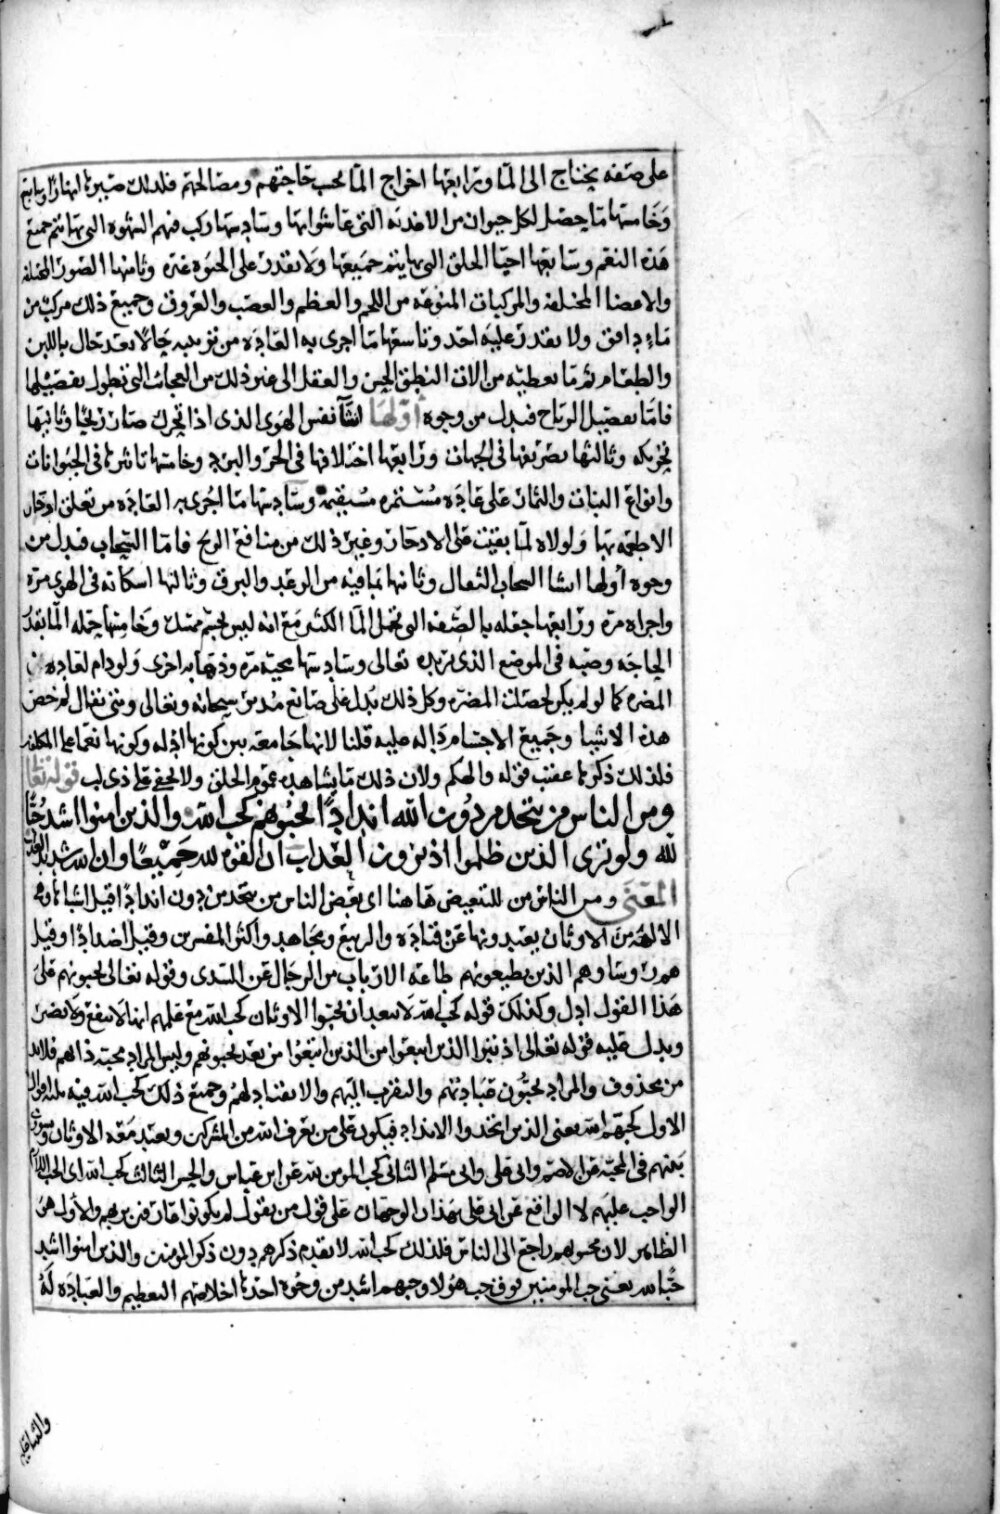 على صفه يحتاج الى الما ورابعها اخراج الما بحسب حاجتهم ومصالحهم فلذلك صيرها انهارا وينابيع
وخامسها ما يحصل لكل حيوان من الاغذيه التي عاشوا بها وسادسها ركب فيهم الشهوه التي بها تتم جميع
هذه النعم وسابعها احيا الخلق التي بها يتم جميعها ولا يقدر على الحيوه غيره وثامنها الصور المختلفه
والاعضا المختلفه والمركبات المتنوعه من اللحم والعظم والعصب والعروق وجميع ذلك مركب من
ماء دافق ولا يقدر عليه احد وتاسعها ما اجرى به العاده من تربيته حالا بعد حال باللبن
والطعام ثم ما يعطيه من الات النطق والحس والعقل الى غير ذلك من العجائب التي تطول تفصيلها
فاما تفصيل الرياح فيدل من وجوه اولها انشا نفس الهوى الذي اذا تحرك صار ريحا وثانيها
تحريكه وثالثها تصريفها في الجهات ورابعها اختلافها في الحر والبرد وخامسها تاثيرها في الحيوانات
وانواع النبات والثمار على عاده مستمره مستقيمه وسادسها ما اجرى به العاده من تعلق ادخار
الاطعمه بها ولولاه لما بقيت على الادخار وغير ذلك من منافع الريح فاما السحاب فيدل من
وجوه اولها انشا السحاب الثقال وثانيها بما فيه من الرعد والبرق وثالثها اسكانه في الهوى مره
واجراه مره ورابعها جعله بالصفه التي تحمل الما الكثير مع انه ليس بجسم ممسك وخامسها حمله الما بقدر
الحاجه وصبه في الموضع الذي يريده تعالى وسادسها مجيه مره وذهابه اخرى ولو دام لعاد
المضره كما لو لم يكن لحصلت المضره وكل ذلك يدل على صانع مدبر سبحانه وتعالى ومتى يقال لم خص
هذه الاشيا وجميع الاجسام داله عليه قلنا لانها جامعه بين كونها ادله وكونها نعما على المكلفين
فلذلك ذكرها عقيب قوله والهكم ولان ذلك ما يشاهده عموم الخلق ولا يخفى على ذي لب قوله تعالى
ومن الناس من يتخذ من دون الله اندادا يحبونهم كحب الله والذين امنوا اشد حبا
لله ولو ترى الذين ظلموا اذ يرون العذاب ان القوه لله جميعا وان الله شديد العذاب
المعنى ومن الناس من للتبعيض هاهنا اي بعض الناس من يتخذ من دون اندادا قيل اشباها وهي
الالهه من الاوثان يعبدونها عن قتاده والربيع ومجاهد واكثر المفسرين وقيل اضدادا وقيل
هم رؤساوهم الذين يطيعونهم طاعه الارباب من الرجال عن السدي وقوله تعالى يحبونهم على
هذا القول ادل وكذلك قوله كحب الله لا يبعد ان يحبوا الاوثان كحب الله مع علمهم انها لا تنفع ولا تضر
ويدل عليه قوله تعالى اذ تبرا الذين اتبعوا من الذين اتبعوا من بعد يحبونهم وليس المراد محبه ذاتهم فلا بد
من محذوف والمراد يحبون عبادتهم والتقرب اليهم والانقياد لهم وجميع ذلك كحب الله فيه ثلثه اقوال
الاول كحبهم الله يعني الذين اتخذوا الانداد فيكون على من يعرف الله من المشركين ويعبد معه الاوثان ويسوي
بينهم في المحبه عن الاصم وابي علي وابي مسلم الثاني كحب المومن لله عن ابن عباس والحسن الثالث كحب الله اي الحب اللازم
الواجب عليهم لا الواقع عن ابي علي بهذان الوجهان على قول من يقول لم يكونوا عارفين بربهم والاول هو
الظاهر لان يحبونهم راجع الى الناس فلذلك كحب الله لا تقدم ذكرهم دون ذكر المومنين والذين امنوا اشد
حبا لله يعني حب المومنين فوق حب هولا وحبهم اشد من وجوه احدها اخلاصهم التعظيم والعباده له